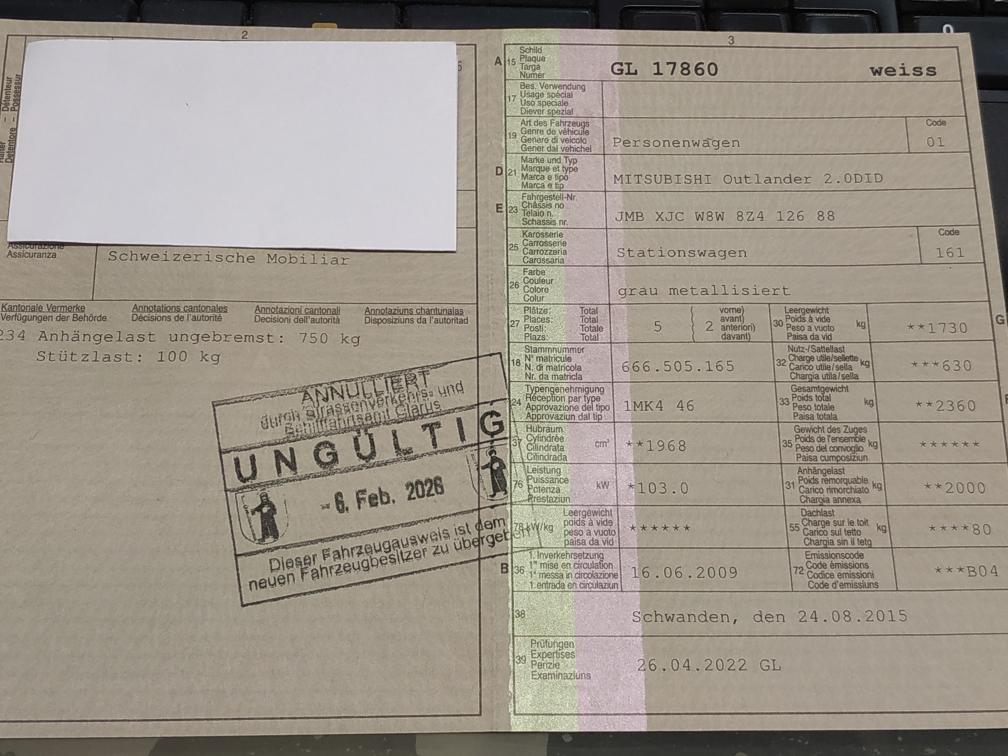 2
Détenteur
Possessur
Detentore
Assicuranza
Schweizerische Mobiliar
Kantonale Vermerke
Verfügungen der Behörde
Annotations cantonales
Décisions de l'autorité
Annotazioni cantonali
Decisioni dell'autorità
Annotaziuns chantunalas
Disposiziuns da l'autoritad
234 Anhängelast ungebremst: 750 kg
Stützlast: 100 kg
ANNULLIERT
durch Strassenverkehrs- und
Schifffahrtsamt Glarus
UNGÜLTIG
- 6. Feb. 2026
Dieser Fahrzeugausweis ist dem
neuen Fahrzeugbesitzer zu übergeben
3
A 15 Schild
Plaque
Targa
Numer
GL 17860 weiss
17 Bes. Verwendung
Usage spécial
Uso speciale
Diever spezial
19 Art des Fahrzeugs
Genre de véhicule
Genere di veicolo
Gener dal vehichel
Personenwagen
Code
01
D 21 Marke und Typ
Marque et type
Marca e tipo
Marca e tip
MITSUBISHI Outlander 2.0DID
E 23 Fahrgestell-Nr.
Châssis no
Telaio n.
Schassis nr.
JMB XJC W8W 8Z4 126 88
25 Karosserie
Carrosserie
Carrozzeria
Carossaria
Stationswagen
Code
161
26 Farbe
Couleur
Colore
Colur
grau metallisiert
27 Plätze: Total
Places: Total
Posti: Totale
Plazs: Total
5
2
vorne)
avant)
anteriori)
davant)
30 Leergewicht
Poids à vide
Peso a vuoto
Paisa da vid
kg
**1730
G
18 Stammnummer
N° matricule
N. di matricola
Nr. da matricla
666.505.165
32 Nutz-/Sattellast
Charge utile/sellette
Carico utile/sella
Chargia utila/sella
kg
***630
24 Typengenehmigung
Réception par type
Approvazione del tipo
Approvaziun dal tip
1MK4 46
33 Gesamtgewicht
Poids total
Peso totale
Paisa totala
**2360
37 Hubraum
Cylindrée
Cilindrata
Cilindrada
cm³
**1968
35 Gewicht des Zuges
Poids de l'ensemble
Peso del convoglio
Paisa cumposiziun
kg
******
76 Leistung
Puissance
Potenza
Prestaziun
kW
*103.0
31 Anhängelast
Poids remorquable
Carico rimorchiato
Chargia annexa
kg
**2000
78 kW/kg
Leergewicht
poids à vide
peso a vuoto
paisa da vid
******
55 Dachlast
Charge sur le toit
Carico sul tetto
Chargia sin il tetg
kg
****80
B 36 1. Inverkehrsetzung
1re mise en circulation
1a messa in circolazione
1. entrada en circulaziun
16.06.2009
72 Emissionscode
Code émissions
Codice emissioni
Code d'emissiuns
***B04
38
Schwanden, den 24.08.2015
39 Prüfungen
Expertises
Perizie
Examinaziuns
26.04.2022 GL